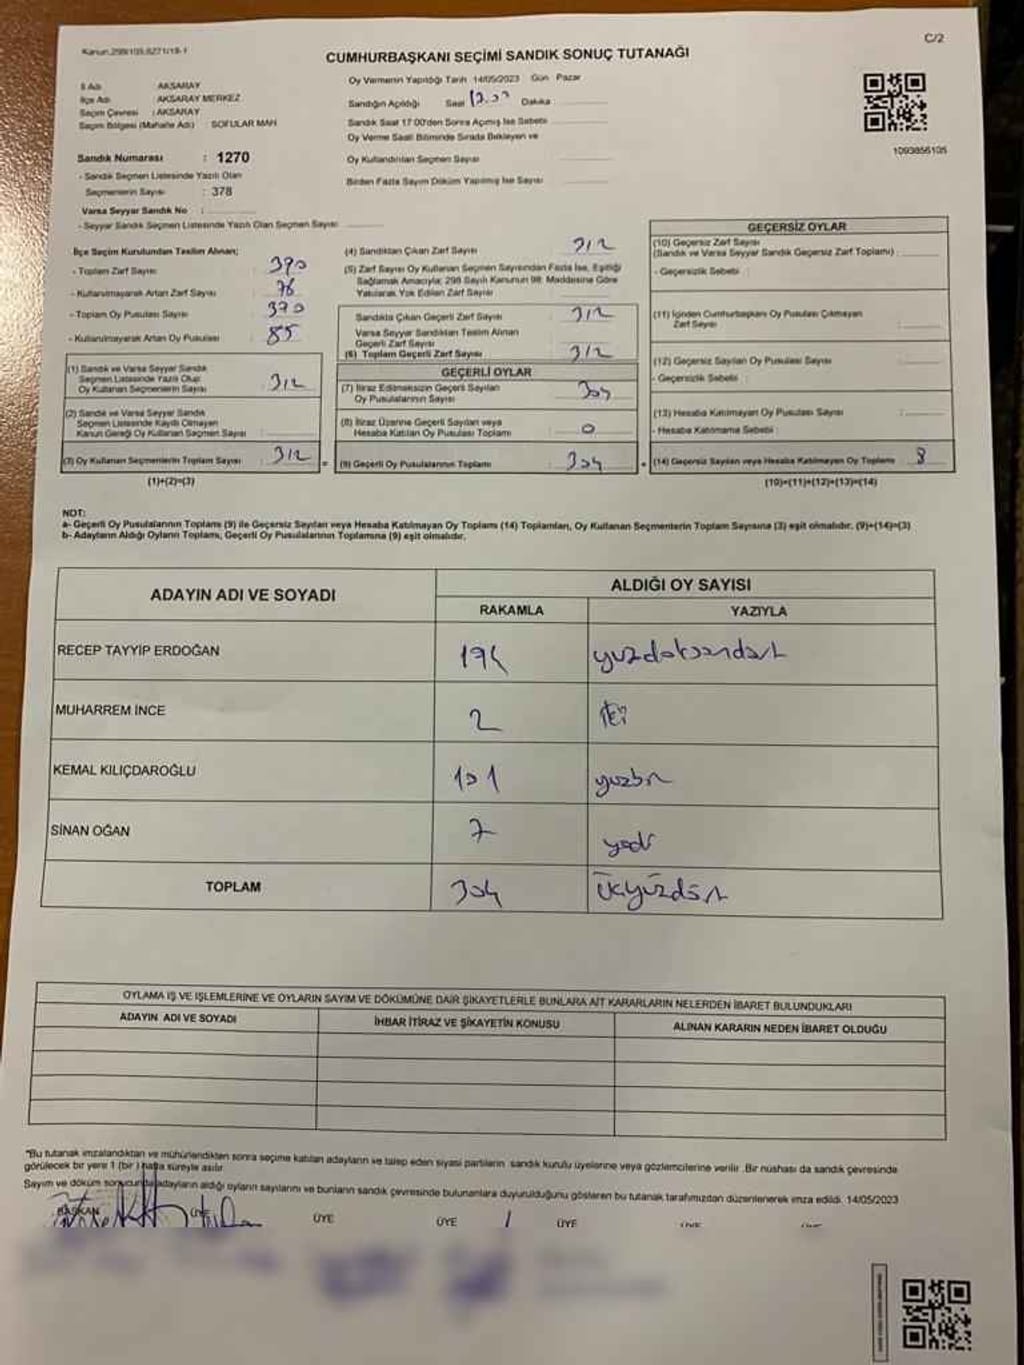 Kanun.298/105,6271/19-1
C/2
CUMHURBAŞKANI SEÇİMİ SANDIK SONUÇ TUTANAĞI
İl Adı : AKSARAY
İlçe Adı : AKSARAY MERKEZ
Seçim Çevresi : AKSARAY
Seçim Bölgesi (Mahalle Adı) : SOFULAR MAH
Sandık Numarası : 1270
- Sandık Seçmen Listesinde Yazılı Olan
Seçmenlerin Sayısı : 378
Varsa Seyyar Sandık No :
- Seyyar Sandık Seçmen Listesinde Yazılı Olan Seçmen Sayısı
Oy Vermenin Yapıldığı Tarih 14/05/2023 Gün Pazar
Sandığın Açıldığı Saat Dakika
Sandık Saat 17:00'den Sonra Açılmış İse Sebebi
Oy Verme Saati Bitiminde Sırada Bekleyen ve
Oy Kullandırılan Seçmen Sayısı
Birden Fazla Sayım Döküm Yapılmış İse Sayısı
1093856105
İlçe Seçim Kurulundan Teslim Alınan;
- Toplam Zarf Sayısı 390
- Kullanılmayarak Artan Zarf Sayısı 78
- Toplam Oy Pusulası Sayısı 390
- Kullanılmayarak Artan Oy Pusulası 85
(1) Sandık ve Varsa Seyyar Sandık
Seçmen Listesinde Yazılı Olup
Oy Kullanan Seçmenlerin Sayısı 312
(2) Sandık ve Varsa Seyyar Sandık
Seçmen Listesinde Kayıtlı Olmayan
Kanun Gereği Oy Kullanan Seçmen Sayısı
(3) Oy Kullanan Seçmenlerin Toplam Sayısı 312 =
(1)+(2)=(3)
(4) Sandıktan Çıkan Zarf Sayısı 312
(5) Zarf Sayısı Oy Kullanan Seçmen Sayısından Fazla İse, Eşitliği
Sağlamak Amacıyla; 298 Sayılı Kanunun 98. Maddesine Göre
Yakılarak Yok Edilen Zarf Sayısı
Sandıkta Çıkan Geçerli Zarf Sayısı 312
Varsa Seyyar Sandıktan Teslim Alınan
Geçerli Zarf Sayısı
(6) Toplam Geçerli Zarf Sayısı 312
GEÇERLİ OYLAR
(7) İtiraz Edilmeksizin Geçerli Sayılan
Oy Pusulalarının Sayısı 304
(8) İtiraz Üzerine Geçerli Sayılan veya
Hesaba Katılan Oy Pusulası Toplamı 0
(9) Geçerli Oy Pusulalarının Toplamı 304 +
GEÇERSİZ OYLAR
(10) Geçersiz Zarf Sayısı
(Sandık ve Varsa Seyyar Sandık Geçersiz Zarf Toplamı) :
- Geçersizlik Sebebi :
(11) İçinden Cumhurbaşkanı Oy Pusulası Çıkmayan
Zarf Sayısı :
(12) Geçersiz Sayılan Oy Pusulası Sayısı
- Geçersizlik Sebebi :
(13) Hesaba Katılmayan Oy Pusulası Sayısı
- Hesaba Katılmama Sebebi :
(14) Geçersiz Sayılan veya Hesaba Katılmayan Oy Toplamı 8
(10)+(11)+(12)+(13)=(14)
NOT:
a- Geçerli Oy Pusulalarının Toplamı (9) ile Geçersiz Sayılan veya Hesaba Katılmayan Oy Toplamı (14) Toplamları, Oy Kullanan Seçmenlerin Toplam Sayısına (3) eşit olmalıdır. (9)+(14)=(3)
b- Adayların Aldığı Oyların Toplamı, Geçerli Oy Pusulalarının Toplamına (9) eşit olmalıdır.
ADAYIN ADI VE SOYADI
ALDIĞI OY SAYISI
RAKAMLA YAZIYLA
RECEP TAYYİP ERDOĞAN 194 yüzdoksandört
MUHARREM İNCE 2 iki
KEMAL KILIÇDAROĞLU 101 yüzbir
SİNAN OĞAN 7 yedi
TOPLAM 304 üçyüzdört
OYLAMA İŞ VE İŞLEMLERİNE VE OYLARIN SAYIM VE DÖKÜMÜNE DAİR ŞİKAYETLERLE BUNLARA AİT KARARLARIN NELERDEN İBARET BULUNDUKLARI
ADAYIN ADI VE SOYADI İHBAR İTİRAZ VE ŞİKAYETİN KONUSU ALINAN KARARIN NEDEN İBARET OLDUĞU
"Bu tutanak imzalandıktan ve mühürlendikten sonra seçime katılan adayların ve talep eden siyasi partilerin sandık kurulu üyelerine veya gözlemcilerine verilir. Bir nüshası da sandık çevresinde
görülecek bir yere 1 (bir) hafta süreyle asılır.
Sayım ve döküm sonucunda adayların aldığı oyların sayılarını ve bunların sandık çevresinde bulunanlara duyurulduğunu gösteren bu tutanak tarafımızdan düzenlenerek imza edildi. 14/05/2023
BAŞKAN ÜYE ÜYE ÜYE ÜYE ÜYE